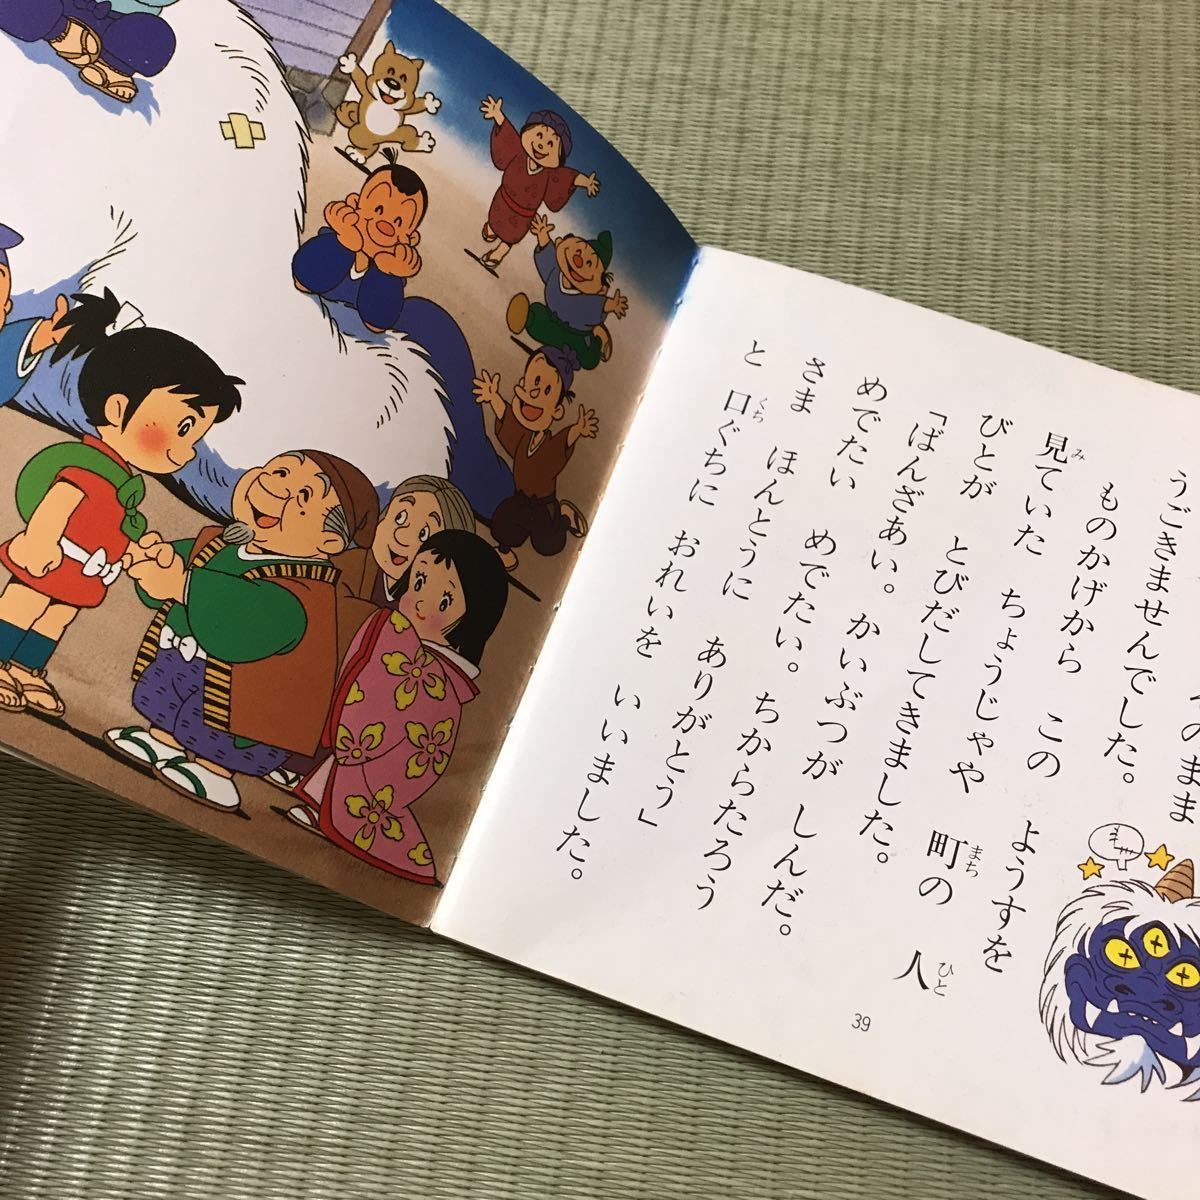 のまま
うごきませんでした。
ものかげから この ようすを
見み ていた ちょうじゃや 町まち の 人ひと
びとが とびだしてきました。
「ばんざあい。かいぶつが しんだ。
めでたい めでたい。ちからたろう
さま ほんとうに ありがとう」
と 口くち ぐちに おれいを いいました。
39